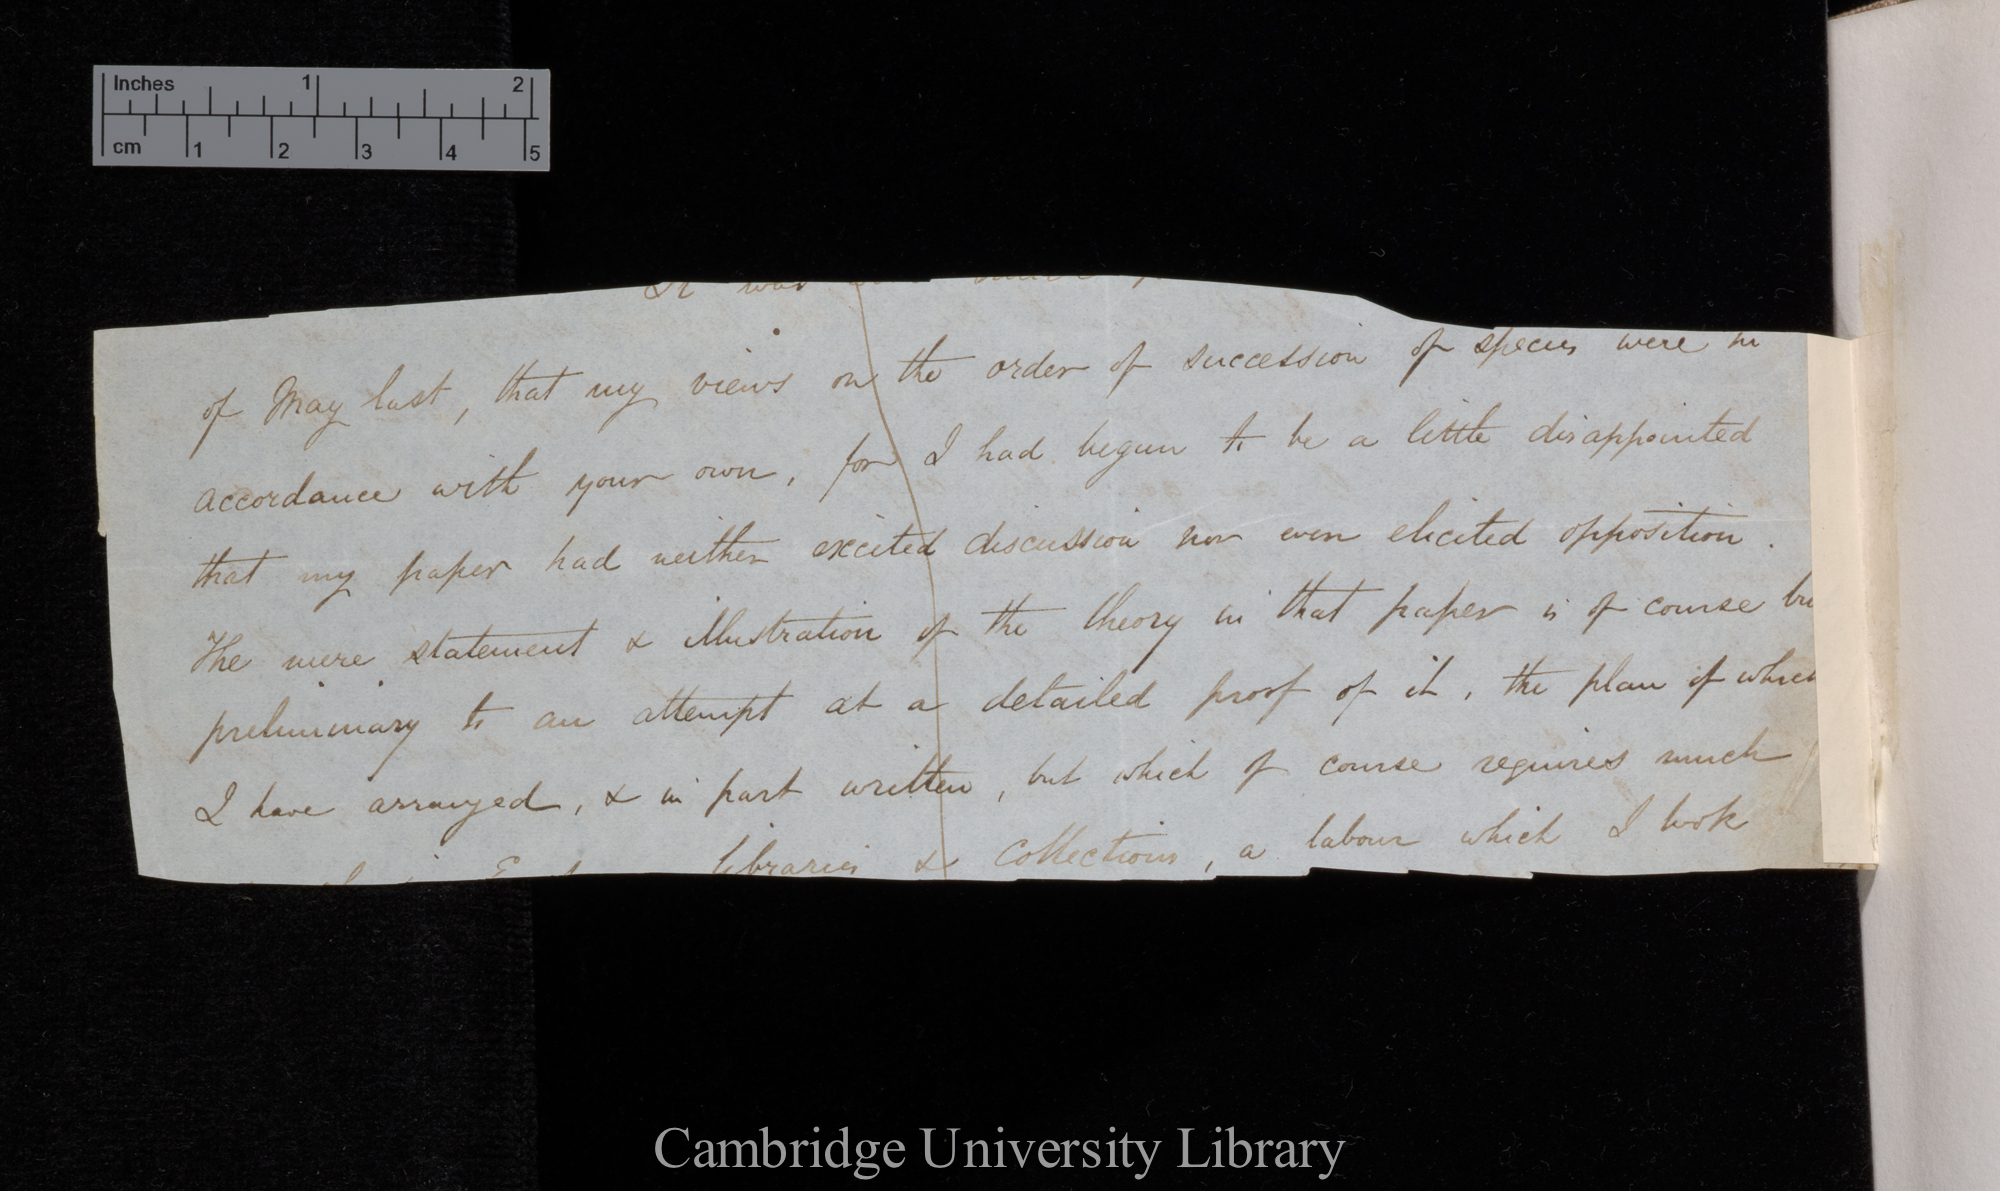 Inches 1 2
cm 1 2 3 4 5
It was
of May last, that my views on the order of succession of species were in
accordance with your own, for I had begun to be a little disappointed
that my paper had neither excited discussion nor even elicited opposition.
The mere statement & illustration of the theory in that paper is of course bu
preliminary to an attempt at a detailed proof of it, the plan of which
I have arranged, & in part written, but which of course requires much
libraries & collections, a labour which I look
Cambridge University Library